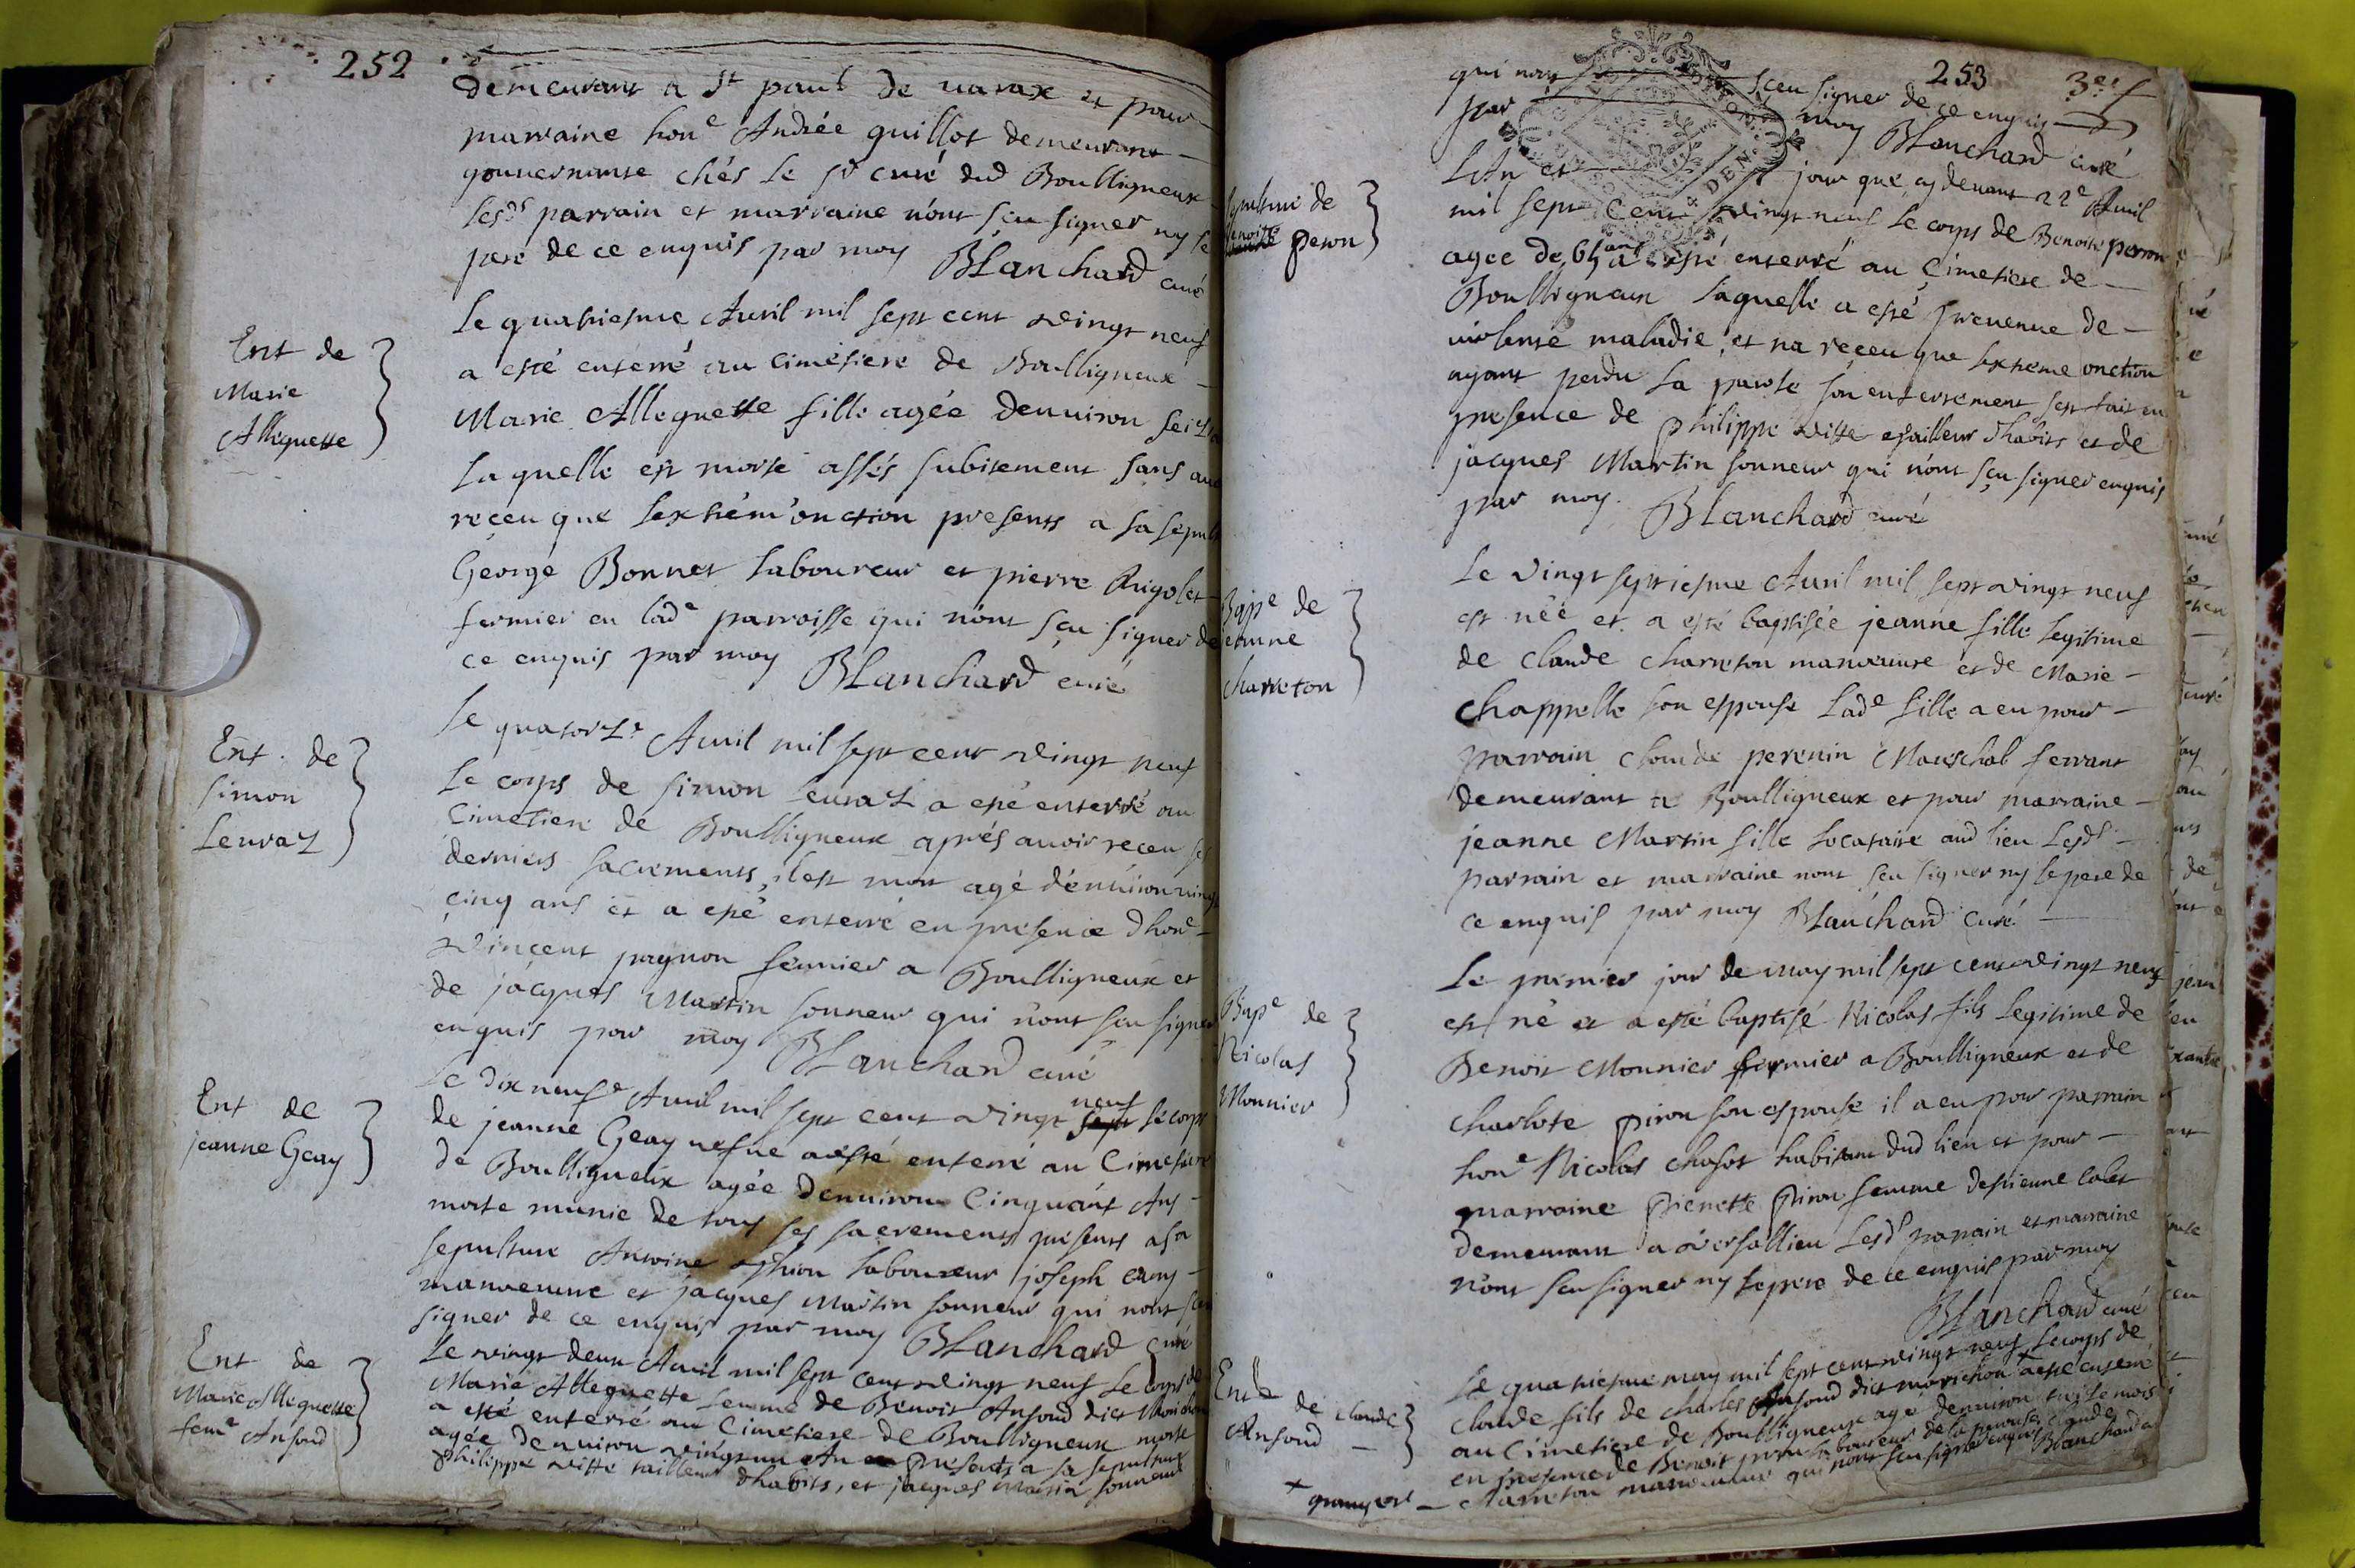 252
demeurant a St paul de varax et pour
marraine hone Andrée guillot demeurant
gouvernante chés le sr curé dud Boulligneux
lesds parrain et marraine n'ont sçu signer ny le
pere de ce enquis par moy Blanchard curé
Ent de
Marie
Alleguette
Le quatriesme Avril mil sept cent vingt neuf
a esté enterré au cimetiere de Boulligneux
Marie Alleguette fille agée denviron
laquelle est morte assés subitement sans
reçeu que lextrem'onction presents a sa
George Bonnet laboureur et pierre Rigolet
fermier en lade parroisse qui n'ont sçu signer de
ce enquis par moy Blanchard curé
Ent. de
simon
Leuraz
Le quatorze Avril mil sept cent vingt neuf
Le corps de simon Leuraz a esté enterré au
Cimetiere de Boulligneux aprés avoir reçeu ses
derniers sacrements, il est mort agé d'environ vingt
cinq ans et a esté enterré en presence dhone
Vincent pagnon fermier a Boulligneux et
de jacques Martin sonneur qui n'ont sçu signer
enquis par moy Blanchard curé
Ent de
jeanne Geay
Le dix neufe Avril mil sept cent vingt neuf le corps
de jeanne Geay vefve a esté enterré au Cimetiere
de Boulligneux agée denviron Cinquant Ans
morte munie de tous ses sacrements presents a sa
sepulture Antoine laboureur joseph
manoeuvre et jacques Martin sonneur qui nont sçu
signer de ce enquis par moy Blanchard curé
Ent de
Marie Alleguette
feme Ansoud
Le vingt deux Avril mil sept cent vingt neuf le corps de
Marie Alleguette femme de Benoit Ansoud dict
a esté enterré au Cimetiere de Boulligneux morte
agée denviron vingt un An presents a sa sepulture
philippe vitte tailleur dhabits, et jacques Martin sonneur
253
qui nont sceu signer de ce enquis
par moy Blanchard curé
sepulture de
benoite peron
LAn et jour que cy devant 22e Avril
mil sept Cent vingt neuf le corps de Benoite perron
agée de 65 ans a esté enterré au Cimetiere de
Boulligneux laquelle a esté prevenue de
violente maladie, et na reçeu que lextreme onction
ayant perdu la parole son enterrement sest fait en
presence de philippe vitte tailleur dhabits et de
jacques Martin sonneur qui n'ont sçu signer enquis
par moy. Blanchard curé
Bapte de
jeanne
charreton
Le vingt septiesme Avril mil sept vingt neuf
est née et a esté baptisée jeanne fille legitime
de claude charreton manoeuvre et de Marie
Chappelle son espouse lade fille a eu pour
parrain claude perenin Mareschal ferrant
demeurant a Boulligneux et pour marraine
jeanne Martin fille locataire aud lieu Lesds
parrain et marraine nont sçu signer ny le pere de
ce enquis par moy Blanchard curé
Bapte de
Nicolas
Monnier
Le premier jour de may mil sept cent vingt neuf
est né et a esté baptisé Nicolas fils legitime de
Benoit Monnier fermier a Boulligneux et de
charlote piron son espouse il a eu pour parrain
hone Nicolas chasot habitant dud lieu et pour
marraine pierrette piron femme destienne
demeurant a Versallieu Lesds parrain et marraine
n'ont sçu signer ny le pere de ce enquis par moy
Blanchard curé
Ent de
de claude
Ansoud
Le quatriesme may mil sept cent vingt neuf le corps de
claude fils de charles Ansoud dict morichon + a esté enterré
au Cimetiere de Boulligneux agé denviron mois
en presence de Benoit laboureur de la claude
+ granger charreton manoeuvre qui n'ont sçu signer enquis Blanchard